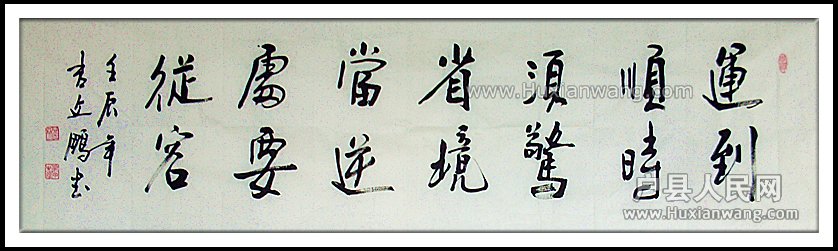 運到
順時
須驚
省境
當逆
處要
從容
壬辰年
鵬书
www.Huxianwang.com
户县人民网
www.Huxianwang.com